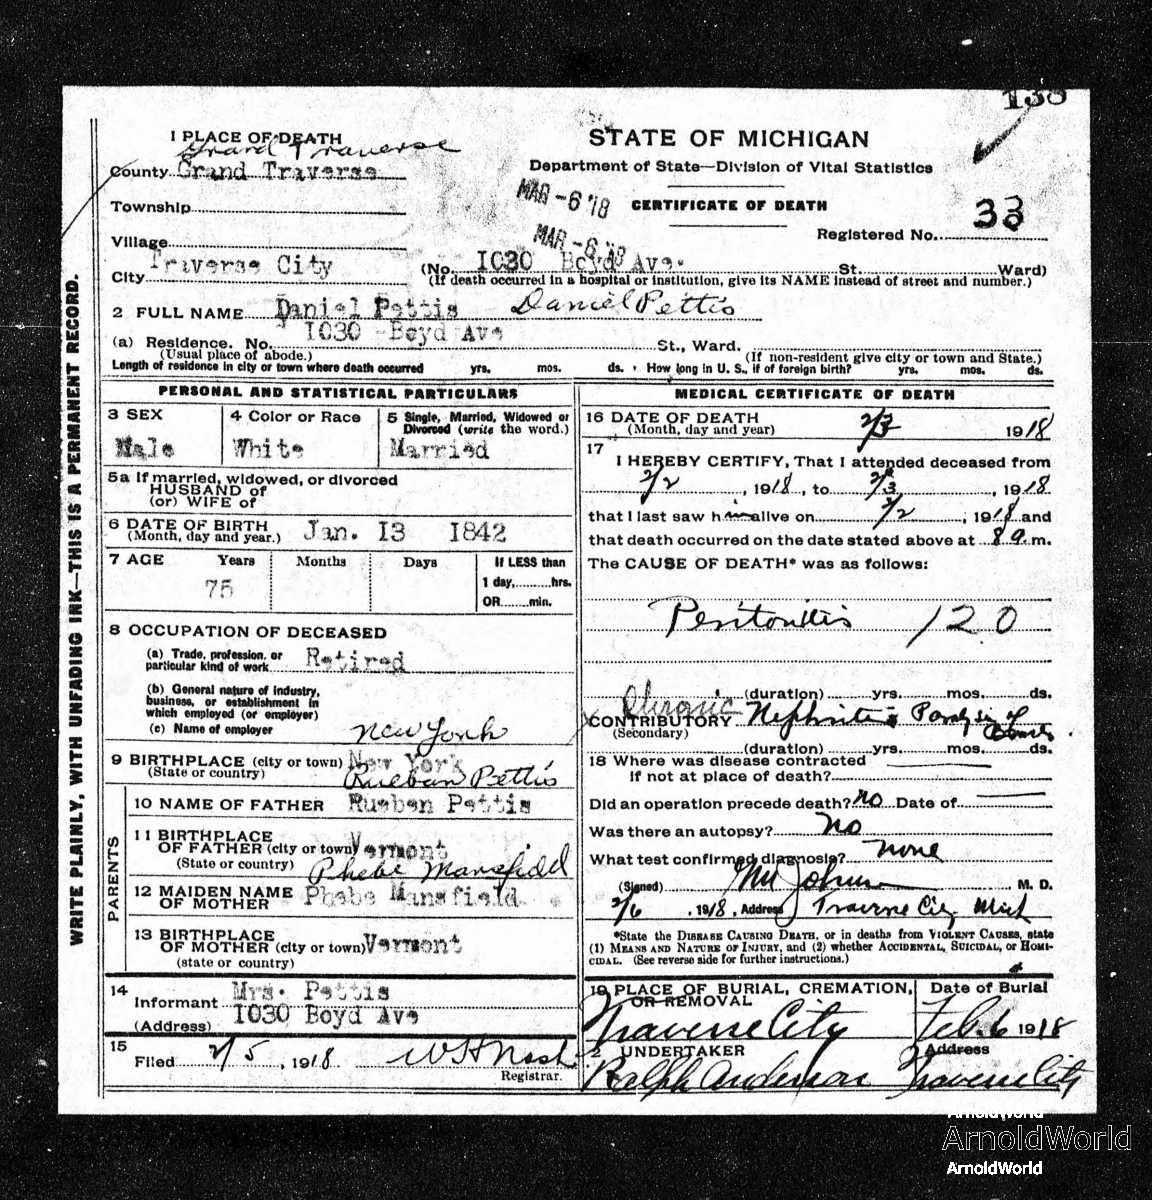 138
1 PLACE OF DEATH
STATE OF MICHIGAN
Grand Traverse
County Grand Traverse
Department of State—Division of Vital Statistics
MAR -6 '18
CERTIFICATE OF DEATH
Township
33
Registered No.
MAR -6 '18
Village
City Traverse City
(No. 1030 Boyd Ave. St. Ward)
(If death occurred in a hospital or institution, give its NAME instead of street and number.)
2 FULL NAME Daniel Pettis Daniel Pettis
(a) Residence. No. 1030 Boyd Ave St., Ward.
(Usual place of abode.)
(If non-resident give city or town and State.)
Length of residence in city or town where death occurred yrs. mos. ds. How long in U. S., if of foreign birth? yrs. mos. ds.
PERSONAL AND STATISTICAL PARTICULARS
3 SEX
Male
4 Color or Race
White
5 Single, Married, Widowed or
Divorced (write the word.)
Married
5a If married, widowed, or divorced
HUSBAND of
(or) WIFE of
6 DATE OF BIRTH
(Month, day and year.) Jan. 13 1842
7 AGE Years Months Days If LESS than
1 day,.........hrs.
OR........min.
75
8 OCCUPATION OF DECEASED
(a) Trade, profession, or
particular kind of work Retired
(b) General nature of industry,
business, or establishment in
which employed (or employer)
(c) Name of employer
New York
9 BIRTHPLACE (city or town) New York
(State or country)
Rueban Pettis
PARENTS
10 NAME OF FATHER Rueben Pettis
11 BIRTHPLACE
OF FATHER (city or town) Vermont
(State or country)
Phebe Mansfield
12 MAIDEN NAME
OF MOTHER Phebe Mansfield
13 BIRTHPLACE
OF MOTHER (city or town) Vermont
(state or country)
14
Informant Mrs. Pettis
(Address) 1030 Boyd Ave
15
Filed 2/5, 1918 W S Nash
Registrar.
MEDICAL CERTIFICATE OF DEATH
16 DATE OF DEATH
(Month, day and year) 2/3 1918
17
I HEREBY CERTIFY, That I attended deceased from
2/2, 1918, to 2/3, 1918
that I last saw him alive on 2/2, 1918 and
that death occurred on the date stated above at 8 a.m.
The CAUSE OF DEATH* was as follows:
Peritonitis 120
(duration) yrs. mos. ds.
Chronic
CONTRIBUTORY Nephritis Paralysis of
(Secondary) Bowels.
(duration) yrs. mos. ds.
18 Where was disease contracted
if not at place of death?
Did an operation precede death? no Date of
Was there an autopsy? No
What test confirmed diagnosis? none
(Signed) M. D.
2/6, 1918, Address Traverse City Mich
*State the DISEASE CAUSING DEATH, or in deaths from VIOLENT CAUSES, state
(1) MEANS AND NATURE OF INJURY, and (2) whether ACCIDENTAL, SUICIDAL, OR HOMI-
CIDAL. (See reverse side for further instructions.)
19 PLACE OF BURIAL, CREMATION,
OR REMOVAL
Traverse City
Date of Burial
Feb. 6 1918
UNDERTAKER
Ralph Anderson
Address
Traverse City
WRITE PLAINLY, WITH UNFADING INK—THIS IS A PERMANENT RECORD.
ArnoldWorld
ArnoldWorld
ArnoldWorld